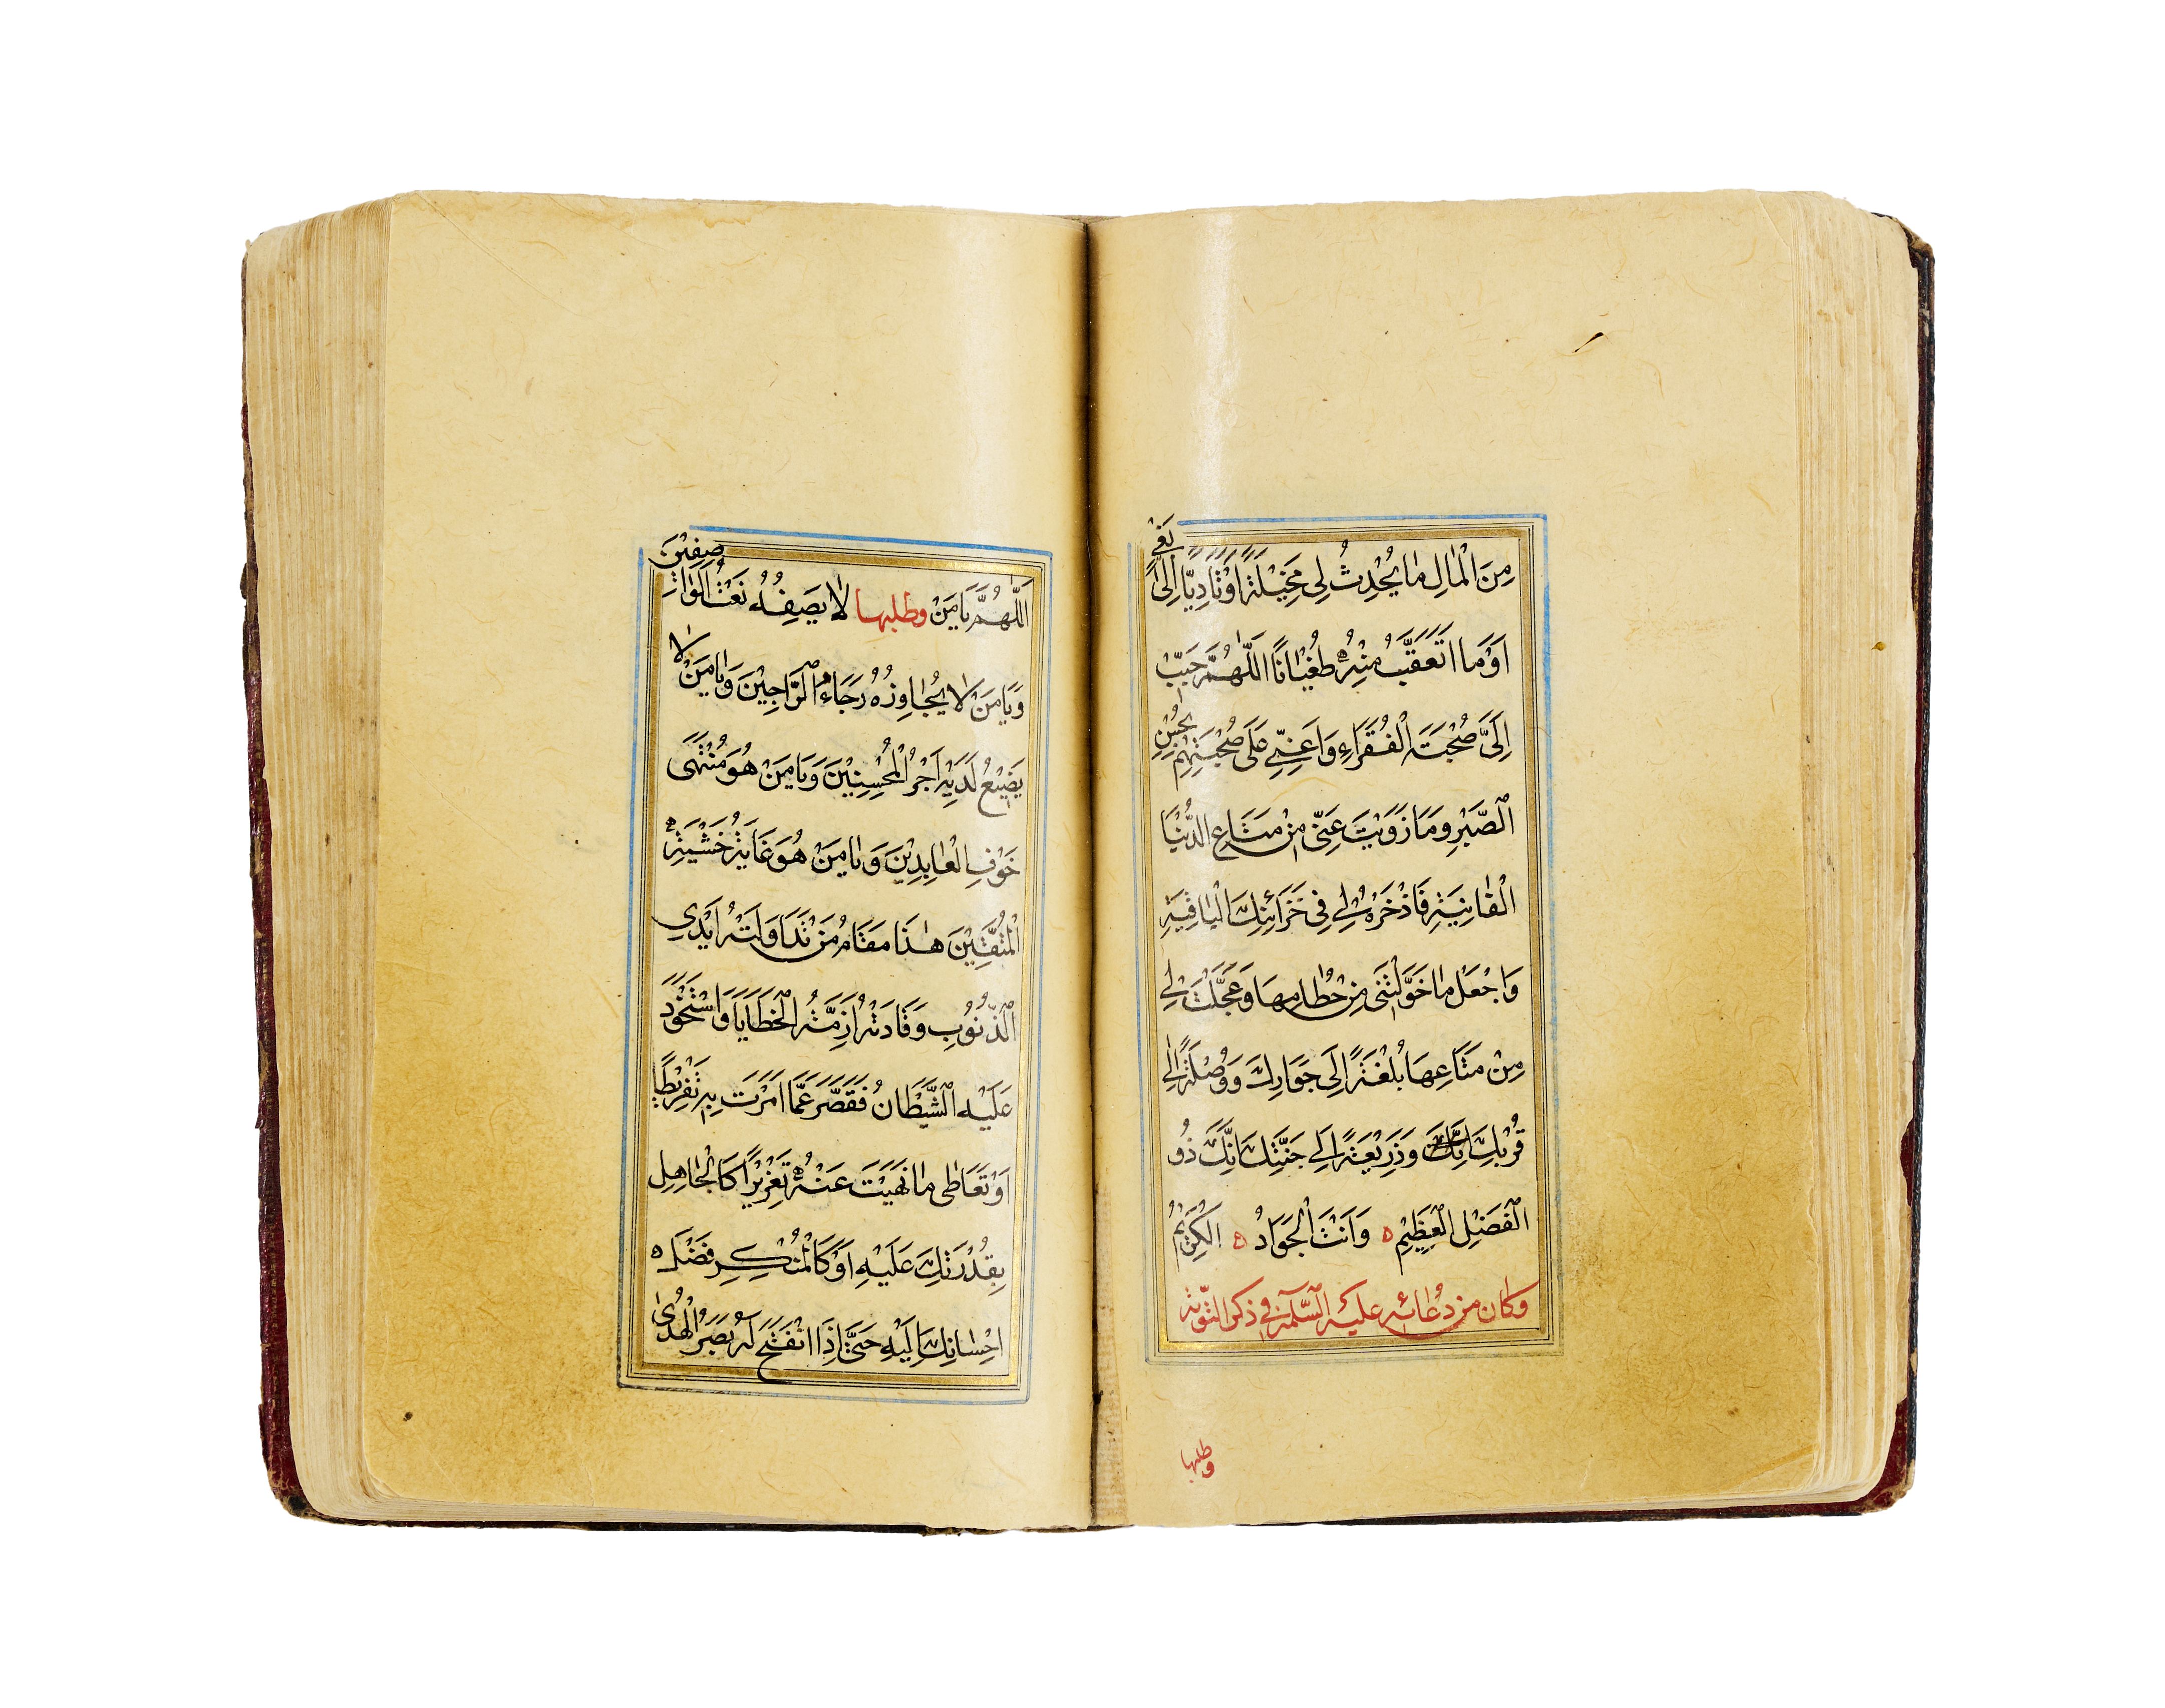 مِنَ الْمَالِ مَا يُحْدِثُ لِي مَخِيْلَةً اَوْ تَادِيًّا اِلَىٰ بَغْيٍ
اَوْ مَا اَتَعَقَّبُ مِنْهُ طُغْيَانًا اَللّٰهُمَّ حَبِّبْ
اِلَيَّ صُحْبَةَ الْفُقَرَاءِ وَاَعِنِّي عَلَى صُحْبَتِهِمْ بِحُسْنِ
الصَّبْرِ وَمَا زَوَيْتَ عَنِّي مِنْ مَتَاعِ الدُّنْيَا
الْفَانِيَةِ فَاذْخَرْهُ لِي فِي خَزَائِنِكَ الْبَاقِيَةِ
وَاجْعَلْ مَا خَوَّلْتَنِي مِنْ حُطَامِهَا وَعَجَّلْتَ لِي
مِنْ مَتَاعِهَا بُلْغَةً اِلَى جَوَارِكَ وَوُصْلَةً اِلَى
قُرْبِكَ وَذَرِيْعَةً اِلَى جَنَّتِكَ اِنَّكَ ذُو
الْفَضْلِ الْعَظِيْمِ ه وَاَنْتَ الْجَوَادُ ه الْكَرِيْمُ
وكان من دُعائه عليه السّلم في ذكر التّوبة
وطلبها
اَللّٰهُمَّ يَا مَنْ وطلبها لَا يَصِفُهُ نَعْتُ الْوَاصِفِيْنَ
وَيَا مَنْ لَا يُجَاوِزُهُ رَجَاءُ الرَّاجِيْنَ وَيَا مَنْ لَا
يَضِيْعُ لَدَيْهِ اَجْرُ الْمُحْسِنِيْنَ وَيَا مَنْ هُوَ مُنْتَهَى
خَوْفِ الْعَابِدِيْنَ وَيَا مَنْ هُوَ غَايَةُ خَشْيَةِ
الْمُتَّقِيْنَ هٰذَا مَقَامُ مَنْ تَدَاوَلَتْهُ اَيْدِي
الذُّنُوْبِ وَقَادَتْهُ اَزِمَّةُ الْخَطَايَا وَاسْتَحْوَذَ
عَلَيْهِ الشَّيْطَانُ فَقَصَّرَ عَمَّا اَمَرْتَ بِهِ تَفْرِيْطًا
اَوْ تَعَاطٰى مَا نَهَيْتَ عَنْهُ تَغْرِيْرًا كَالْجَاهِلِ
بِقُدْرَتِكَ عَلَيْهِ اَوْ كَالْمُنْكِرِ فَضْلَ
اِحْسَانِكَ اِلَيْهِ حَتَّى اِذَا انْفَتَحَ لَهُ بَصَرُ الْهُدٰى